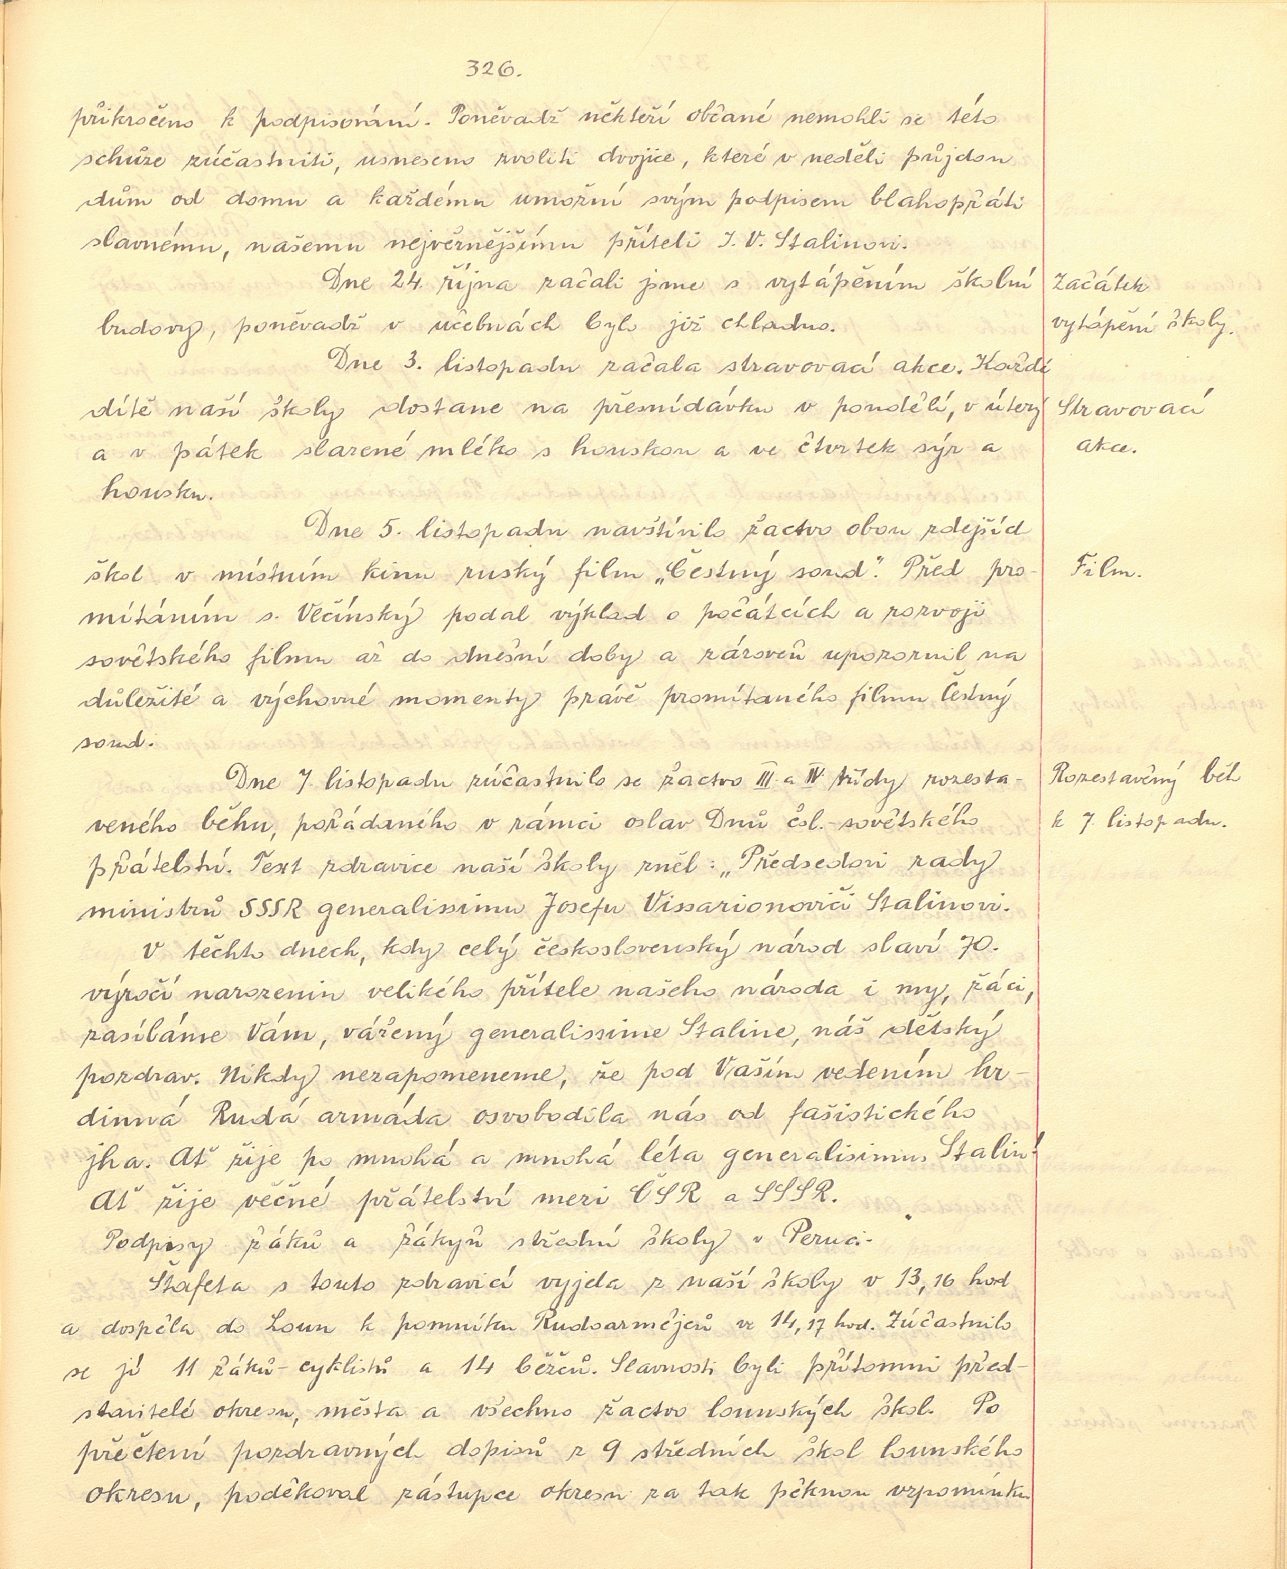 326.
přikročeno k podpisování. Poněvadž někteří občané nemohli se této
schůze zúčastniti, usneseno zvoliti dvojice, které v neděli půjdou
dům od domu a každému umožní svým podpisem blahopřáti
slavnému, našemu nejvěrnějšímu příteli J. V. Stalinovi.
Dne 24. října začali jsme s vytápěním školní
budovy, poněvadž v učebnách bylo již chladno.
Začátek
vytápění školy.
Dne 3. listopadu začala stravovací akce. Každé
dítě naší školy dostane na přesnídávku v pondělí, v úterý
a v pátek slazené mléko s houskou a ve čtvrtek sýr a
housku.
Stravovací
akce.
Dne 5. listopadu navštívilo žactvo obou zdejších
škol v místním kinu ruský film „Čestný soud". Před pro-
mítáním s. Vlčínský podal výklad o počátcích a rozvoji
sovětského filmu až do dnešní doby a zároveň upozornil na
důležité a výchovné momenty právě promítaného filmu Čestný
soud.
Film.
Dne 7. listopadu zúčastnilo se žactvo III. a IV. třídy rozesta-
veného běhu, pořádaného v rámci oslav Dnů čsl.-sovětského
přátelství. Text zdravice naší školy zněl: „Předsedovi rady
ministrů SSSR generalissimu Josefu Vissarionoviči Stalinovi.
Rozestavěný běh
k 7. listopadu.
V těchto dnech, kdy celý československý národ slaví 70.
výročí narozenin velikého přítele našeho národa i my, žáci,
zasíláme Vám, vážený generalissime Staline, náš dětský
pozdrav. Nikdy nezapomeneme, že pod Vaším vedením hr-
dinná Rudá armáda osvobodila nás od fašistického
jha. Ať žije po mnohá a mnohá léta generalisimus Stalin!
Ať žije věčné přátelství mezi ČSR a SSSR.
Podpisy žáků a žákyň střední školy v Peruci.
Štafeta s touto zdravicí vyjela z naší školy v 13,16 hod
a dospěla do Loun k pomníku Rudoarmějců ve 14,17 hod. Zúčastnilo
se jí 11 žáků-cyklistů a 14 běžců. Slavnosti byli přítomni před-
stavitelé okresu, města a všechno žactvo lounských škol. Po
přečtení pozdravných dopisů z 9 středních škol lounského
okresu, poděkoval zástupce okresu za tak pěknou vzpomínku